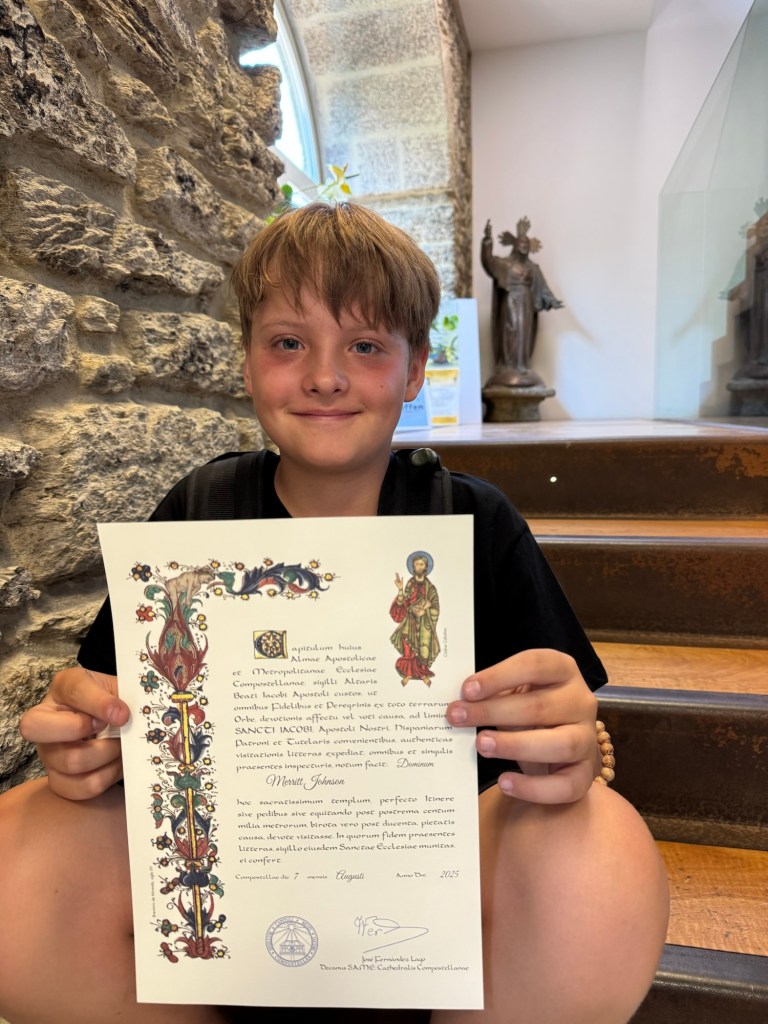 Capitulum huius
Almae Apostolicae
et Metropolitanae Ecclesiae
Compostellanae, sigilli Altaris
Beati Iacobi Apostoli custos, ut
omnibus Fidelibus et Peregrinis ex toto terrarum
Orbe, devotionis affectu vel voti causa, ad limina
SANCTI IACOBI, Apostoli Nostri, Hispaniarum
Patroni et Tutelaris convenientibus, authenticas
visitationis litteras expediat, omnibus et singulis
praesentes inspecturis, notum facit: Dominum
Merritt Johnson
hoc sacratissimum templum, perfecto Itinere
sive pedibus sive equitando post postrema centum
milia metrorum, birota vero post ducenta, pietatis
causa, devote visitasse. In quorum fidem praesentes
litteras, sigillo eiusdem Sanctae Ecclesiae munitas,
ei confert.
Compostellae die 7 mensis Augusti Anno Dni 2025
José Fernández Lago
Decanus S.A.M.E. Cathedralis Compostellanae